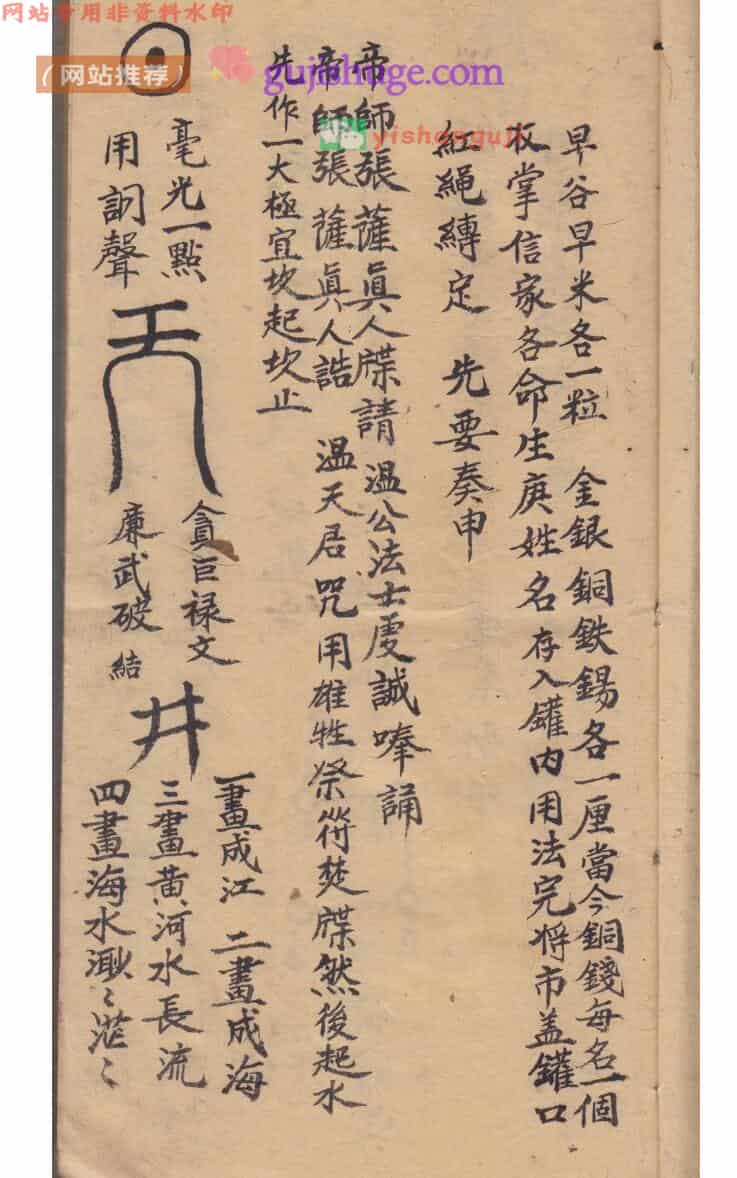 网站专用非资料水印
（网站推荐）
gujishuge.com
yishanguji
早谷早米各一粒 金銀銅鉄錫各一厘當今銅錢每名一個
收掌信家各命生庚姓名存入鑵内用法完将市盖鑵口
紅繩縛定 先要奏申
帝師張薩眞人牒請温公法士虔誠唪誦
帝師張薩眞人誥 温天居咒用雄牲祭符焚牒然後起水
先作一大極宜坎起坎止
毫光一點
用訶聲
貪巨禄文
廉武破 結
井
一畫成江 二畫成海
三畫黄河水長流
四畫海水溵〻茫〻